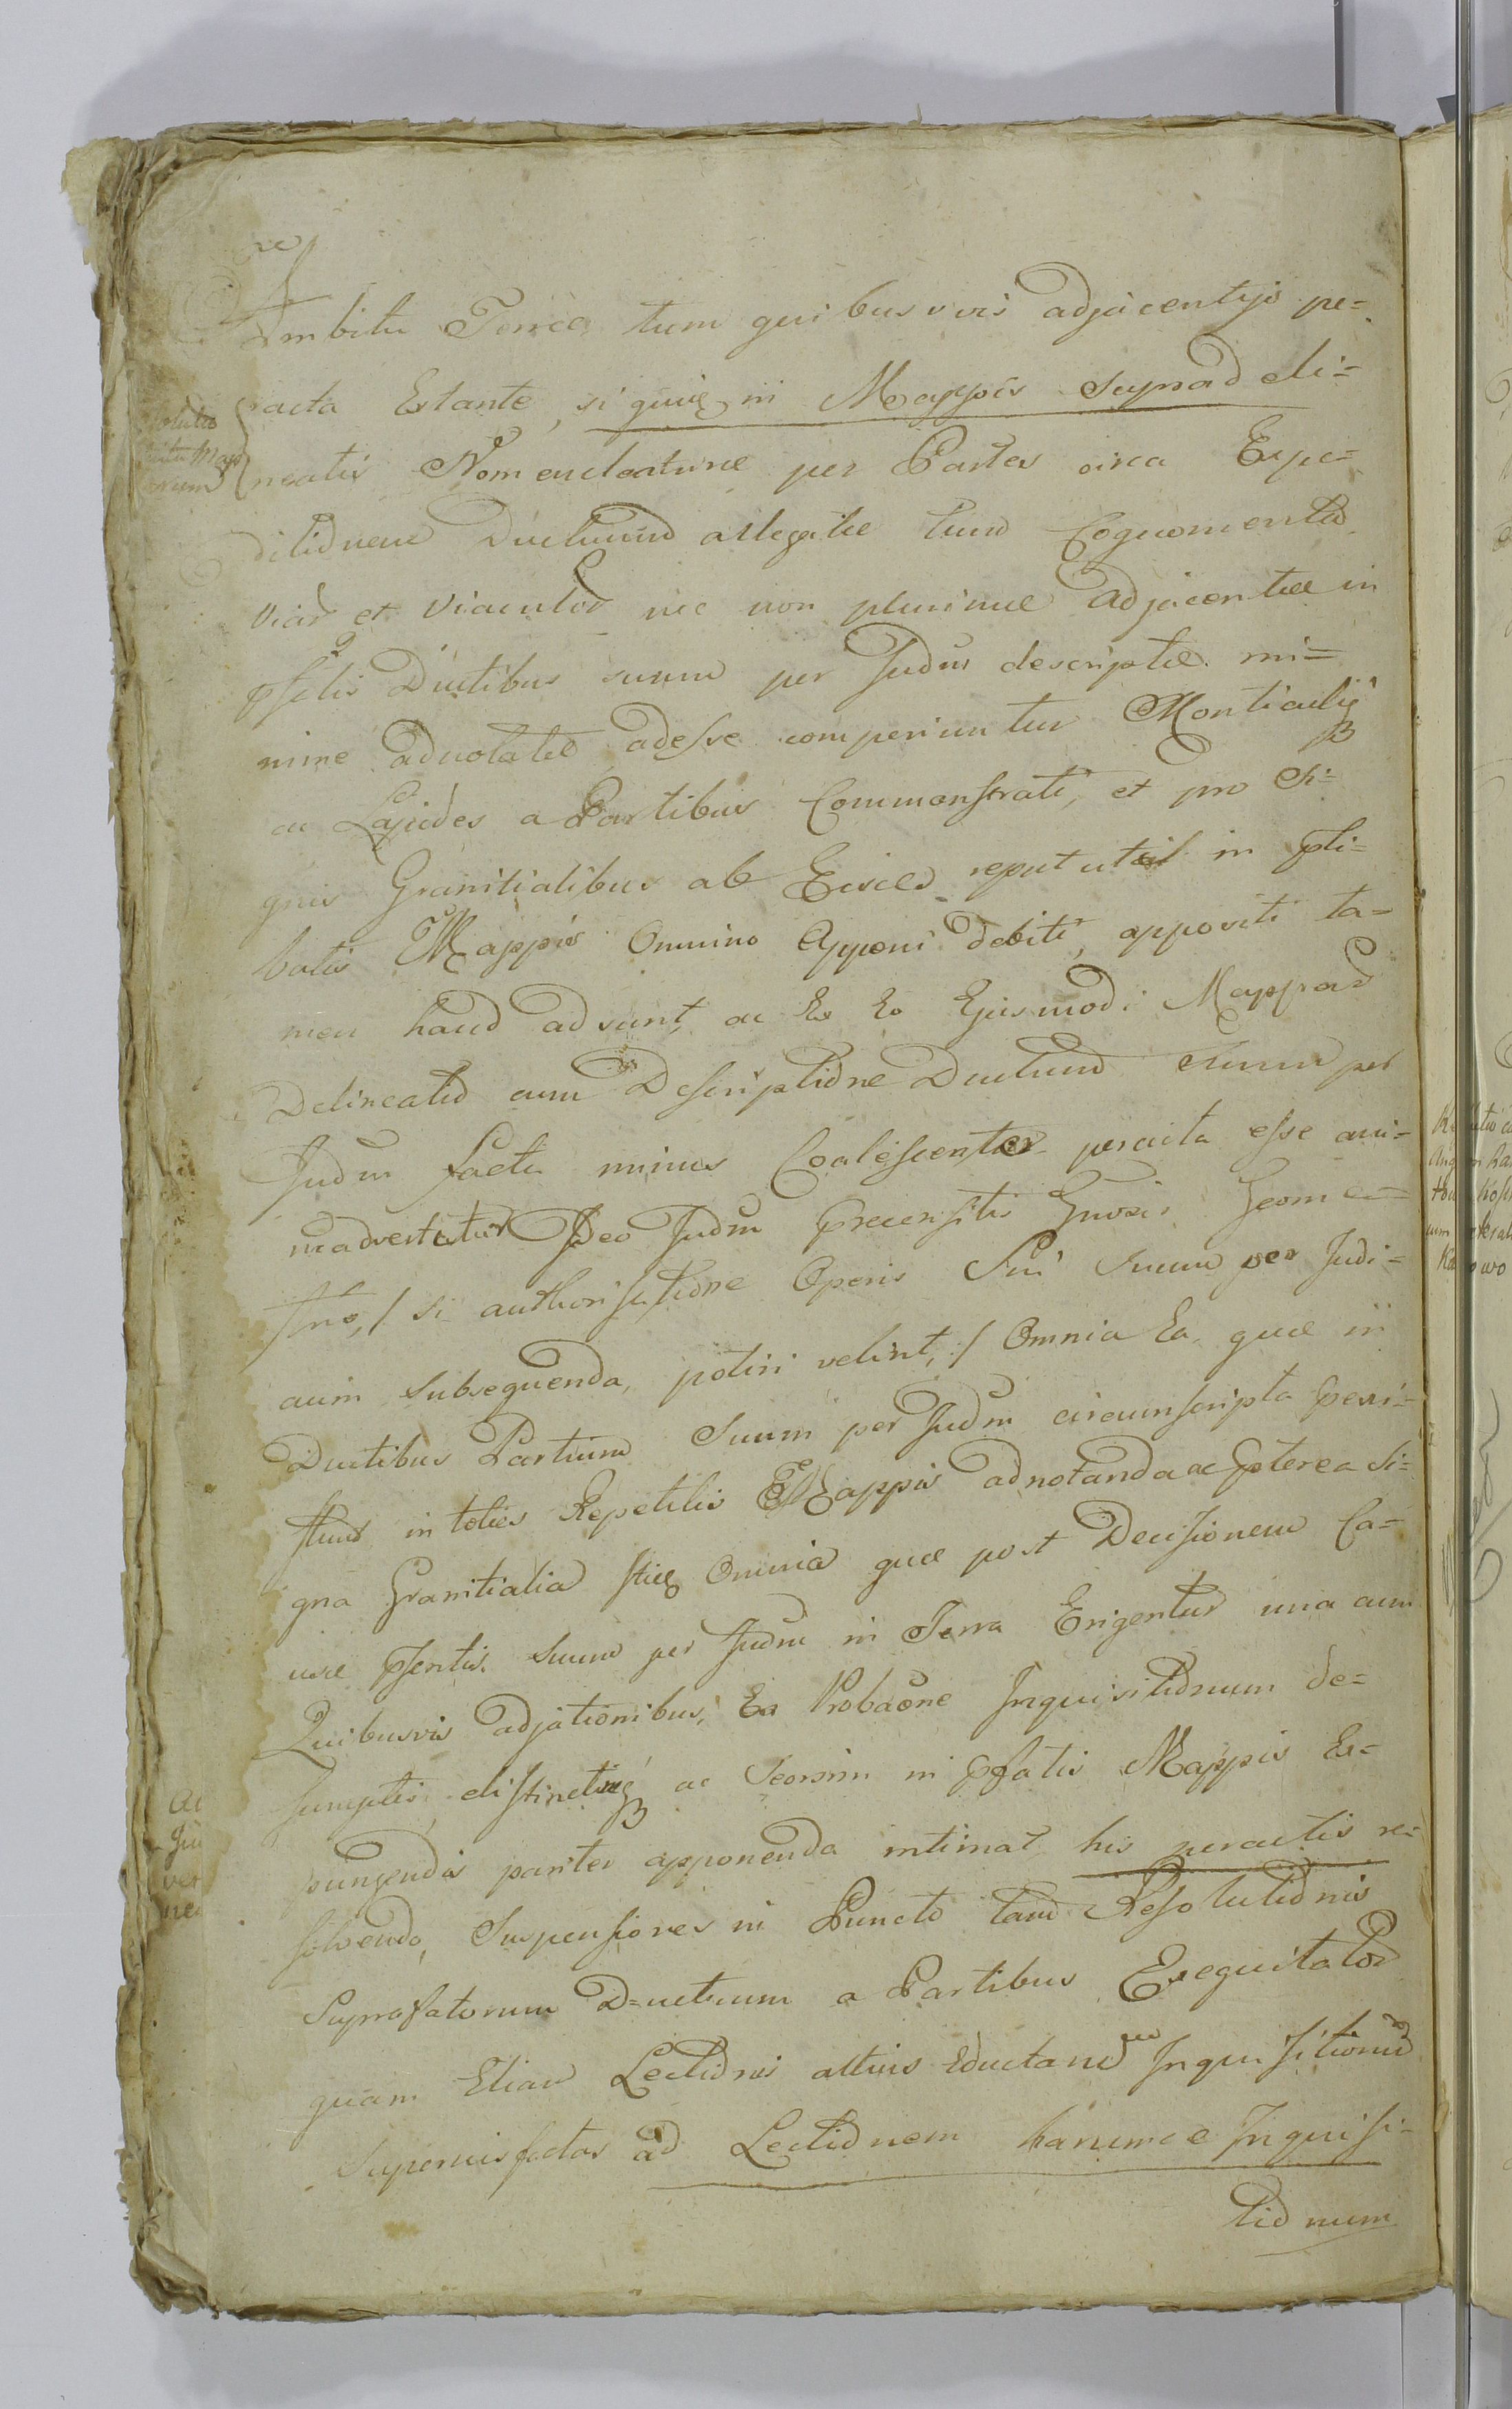 Ambitu Terræ, tum quibusvis adjacentijs pe=
racta Extante, siquiq in Mappis suprad eli=
neatis Nomenclaturæ per Partes circa Expe=
ditidnem Ductuum allegatæ tum Cognomenta
Viar et Viaculor nec non plurimæ adjacentiæ in
Ductibus suum per Judm descriptæ mi=
nime adnotatæ adesse comperiuntur Monticuliq
ac Lapides a Partibus Commonstrati, et pro Si=
gnis Granitialibus ab Eisdem reputati in
batis Mappis Omnino Apponi debiti, appositi ta=
men haud adsunt, ac Ex Eo Ejusmodi Mappar
Delineatio cum Descriptidne Ductuum suum per
Judm facta minus Coalescenter peracta esse ani=
madvertitur Ideo Judm Precensitis Gnosis Geome=
tris, / si authorisatidne Operis Sui suum per Judi=
cium subsequenda, potiri velint, / Omnia Ea quæ in
Ductibus Partium Suum per Judm circumscripta
in toties Repetitis Mappis adnotanda ac pterea Si=
gna Granitialia Omnia quæ post Decisionem Ca=
usæ psentis suum per Judm in Terra Erigentur una cum
Quibusvis adjationibus, Ex Probaone Inquisitidnum de=
sumptis distinctiq ac Seorsim in pfatis Mappis Ex=
pungendis pariter apponenda intimat his peractis re=
solvendo, Suspensiones in Puncto tam Resolutidnis
Suprafatorum Ductuum a Partibus Exequitator
quam Etiam Lectidnis altius Eductarum Inquisitionum
Superius factas ad Lectidnem harumce Inquisi=
tidnum